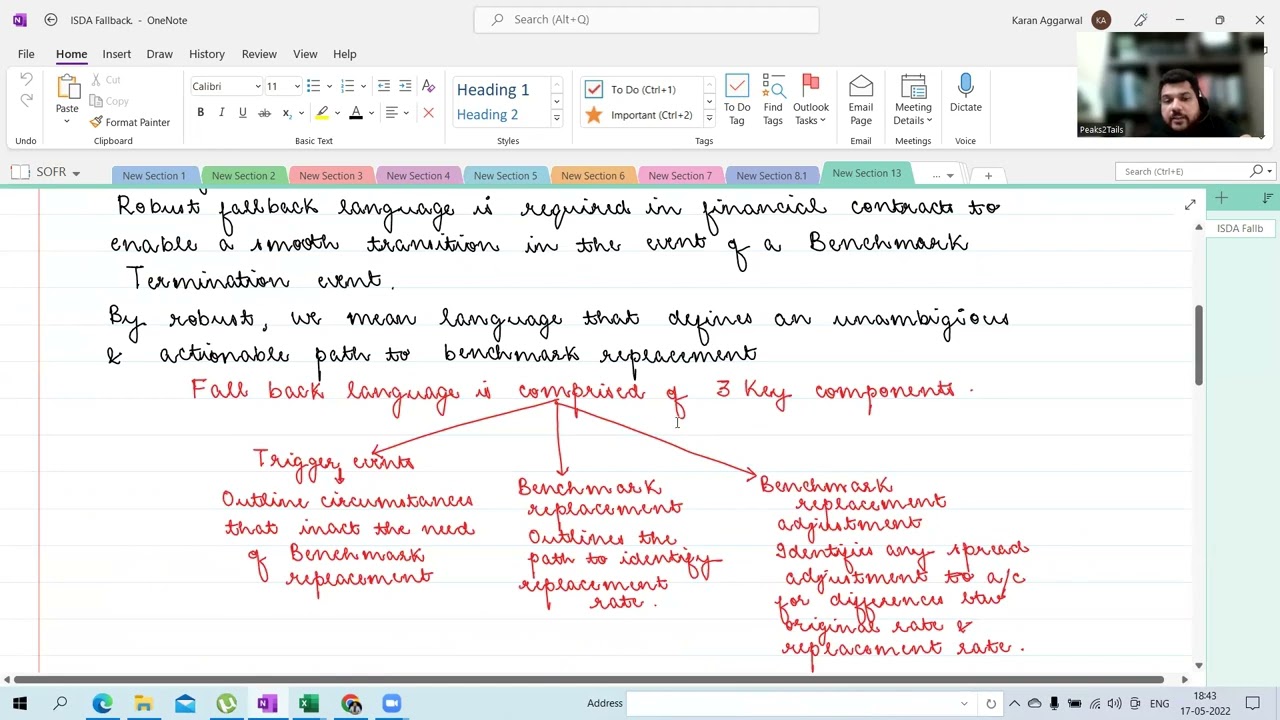 ISDA Fallback. - OneNote
Search (Alt+Q)
Karan Aggarwal
KA
File Home Insert Draw History Review View Help
Paste
Cut
Copy
Format Painter
Calibri 11
Heading 1
Heading 2
To Do (Ctrl+1)
Important (Ctrl+2)
To Do Tag
Find Tags
Outlook Tasks
Email Page
Meeting Details
Dictate
Peaks2Tails
Undo Clipboard Basic Text Styles Tags Email Meetings Voice
SOFR
New Section 1 New Section 2 New Section 3 New Section 4 New Section 5 New Section 6 New Section 7 New Section 8.1 New Section 13 ...
Search (Ctrl+E)
ISDA Fallb
Robust fallback language is required in financial contracts to
enable a smooth transition in the event of a Benchmark
Termination event.
By robust, we mean language that defines an unambigious
& actionable path to benchmark replacement
Fall back language is comprised of 3 Key components.
Trigger events
Outline circumstances
that inact the need
of Benchmark
replacement
Benchmark
replacement
Outlines the
path to identify
replacement
rate.
Benchmark
replacement
adjustment
Identifies any spread
adjustment to a/c
for differences btw
original rate &
replacement rate.
Address
ENG
18:43
17-05-2022